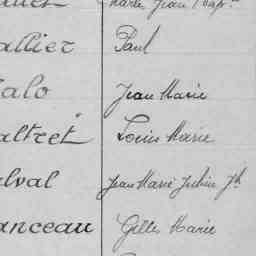 Jean Bap.
allier Paul
alo Jean Marie
altret Louis Marie
lval Jean Marie Julien Jh
anceau Gilles Marie